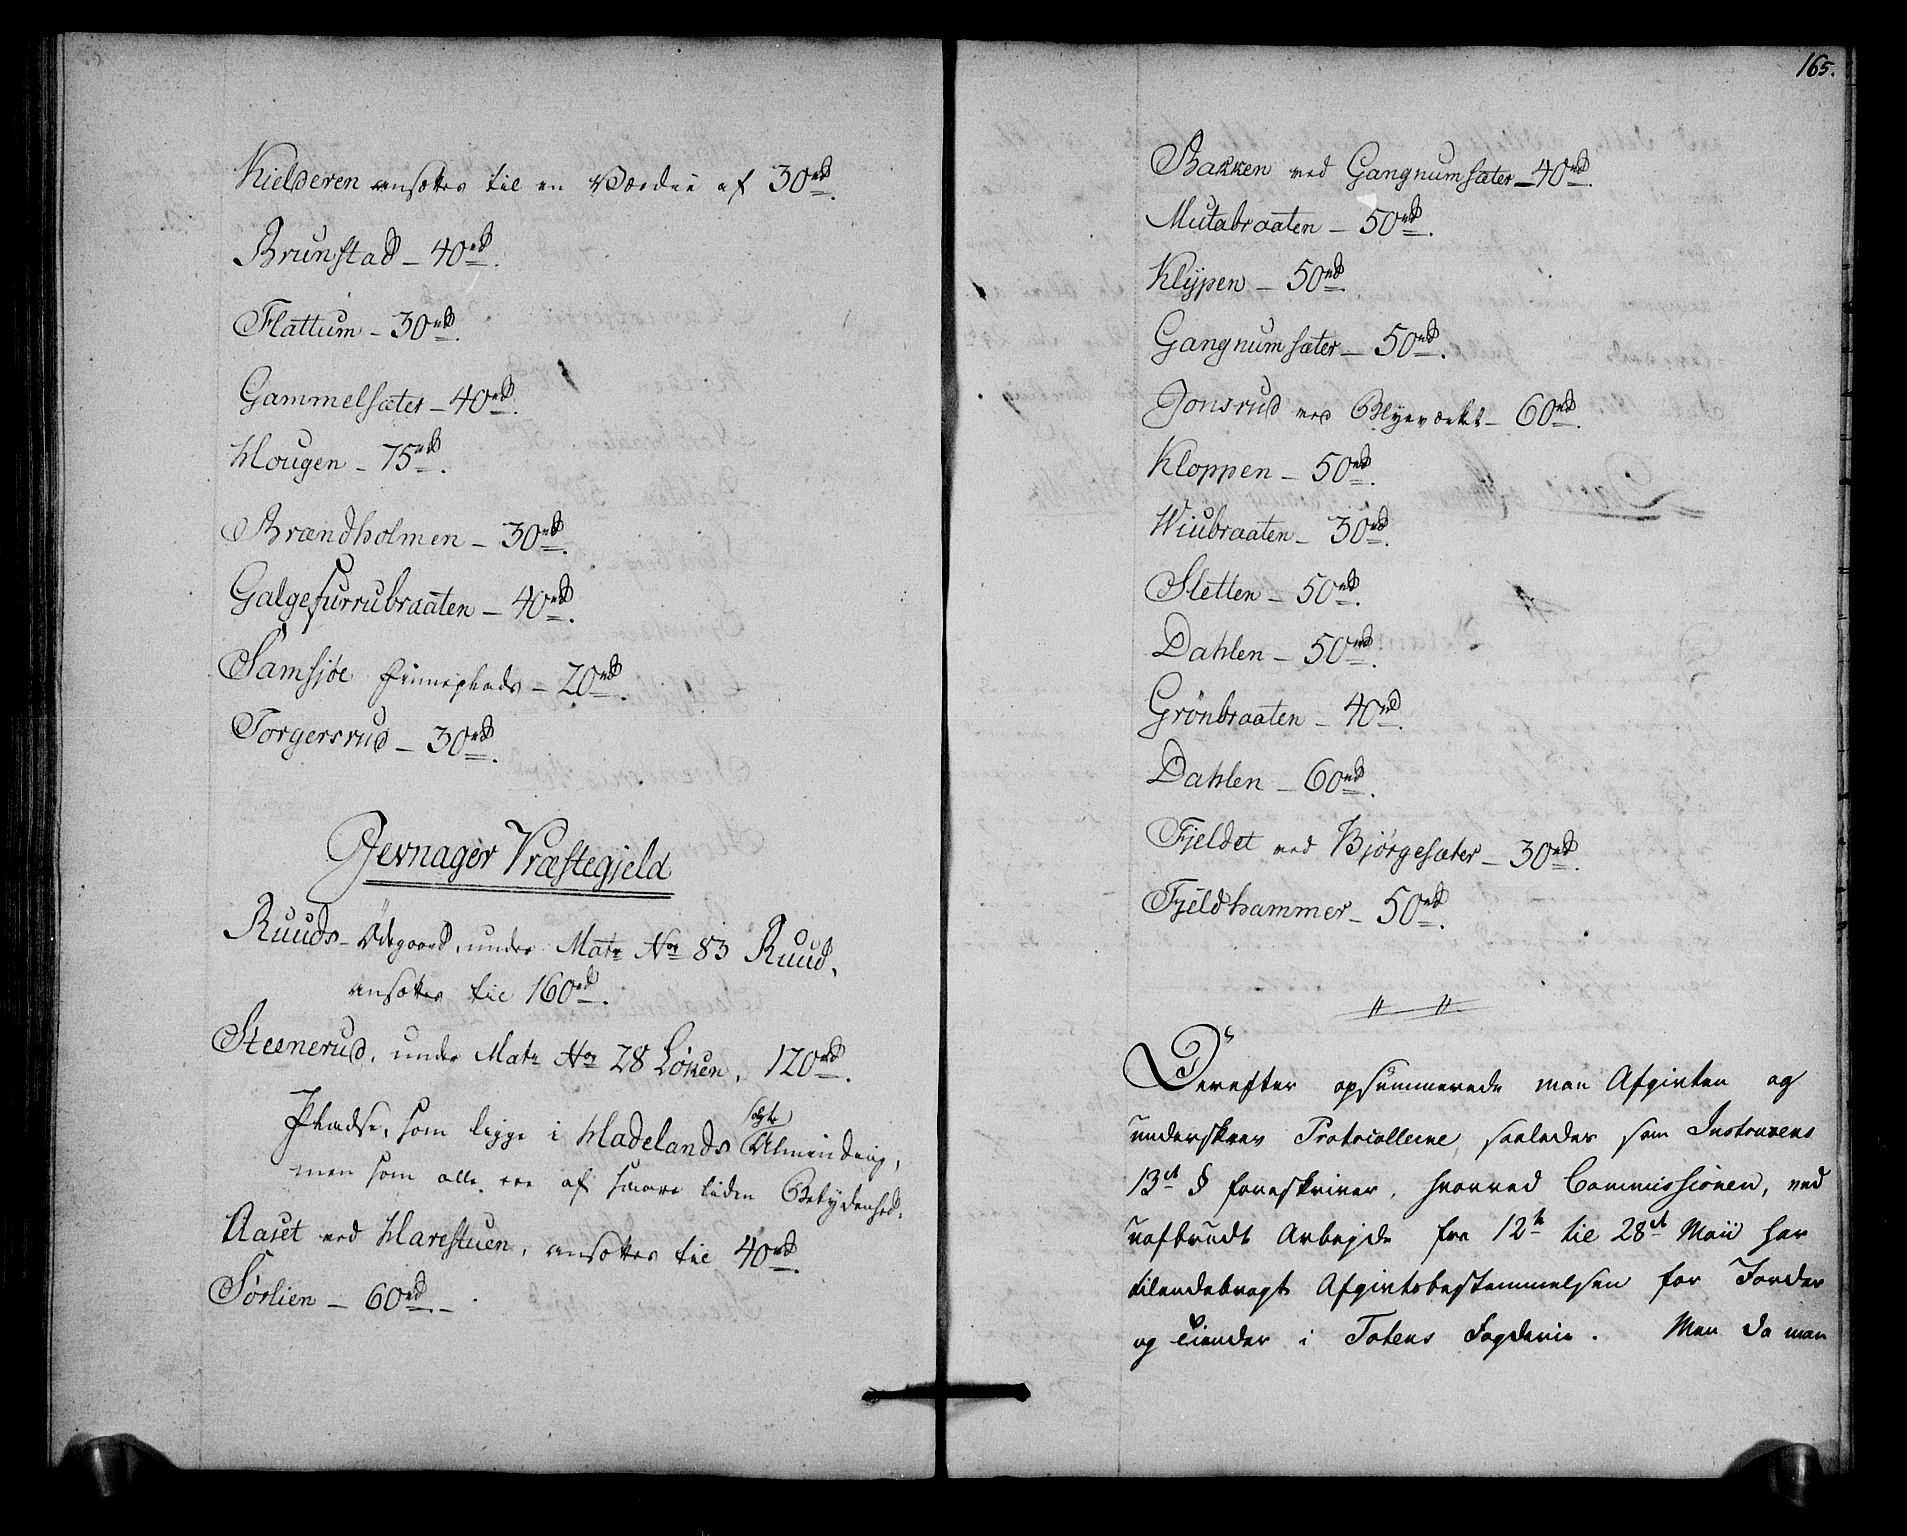 Kielderen ansættes til en Værdie af 30rd.
Brunstad – 40rd.
Flattum – 30rd.
Gammelsæter – 40rd.
Hougen – 75rd.
Brændholmen – 30rd.
Galgefurrubraaten – 40rd.
Samsjøe Finneplads – 20rd.
Torgersrud – 30rd.
Jevnager Præstegjeld
Ruuds-Ödegaard, under Matr No 83 Ruud,
ansættes til 160rd.
Steenerud, under Matr No 28 Løken, 120rd.
Pladse, som ligge i Hadelands solgte Almending,
men som alle ere af saare liden Betydenhed.
Aaset ved Harestuen, ansættes til 40rd.
Sørlien – 60rd. –
165.
Bakken ved Gangnumsæter – 40rd.
Mutabraaten – 50rd.
Klypen – 50rd.
Gangnumsæter – 50rd.
Jonsrud ved Blyeværket – 60rd.
Kloppen – 50rd.
Wiubraaten – 30rd.
Sletten – 50rd.
Dahlen – 50rd.
Grönbraaten – 40rd.
Dahlen – 60rd.
Fjeldet ved Bjørgesæter – 30rd.
Fjeldhammer – 50rd.
Derefter opsummerede man Afgivten og
underskrev Protocollerne, saaledes som Instruxens
13de § foreskriver, hvorved Commissionen, ved
uafbrudt Arbejde fra 12te til 28de Maii har
tilendebragt Afgivtsbestemmelsen for Jorder
og Tiender i Totens Fogderie. Men da man